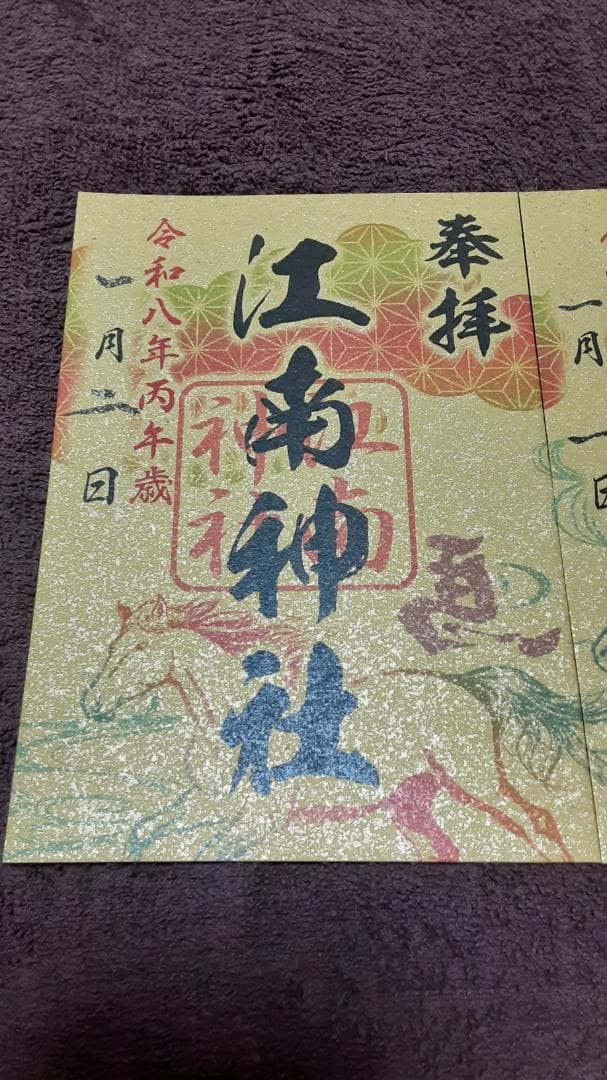 奉拝
江南神社
江南
神社
令和八年丙午歳
一月二日
一月一日